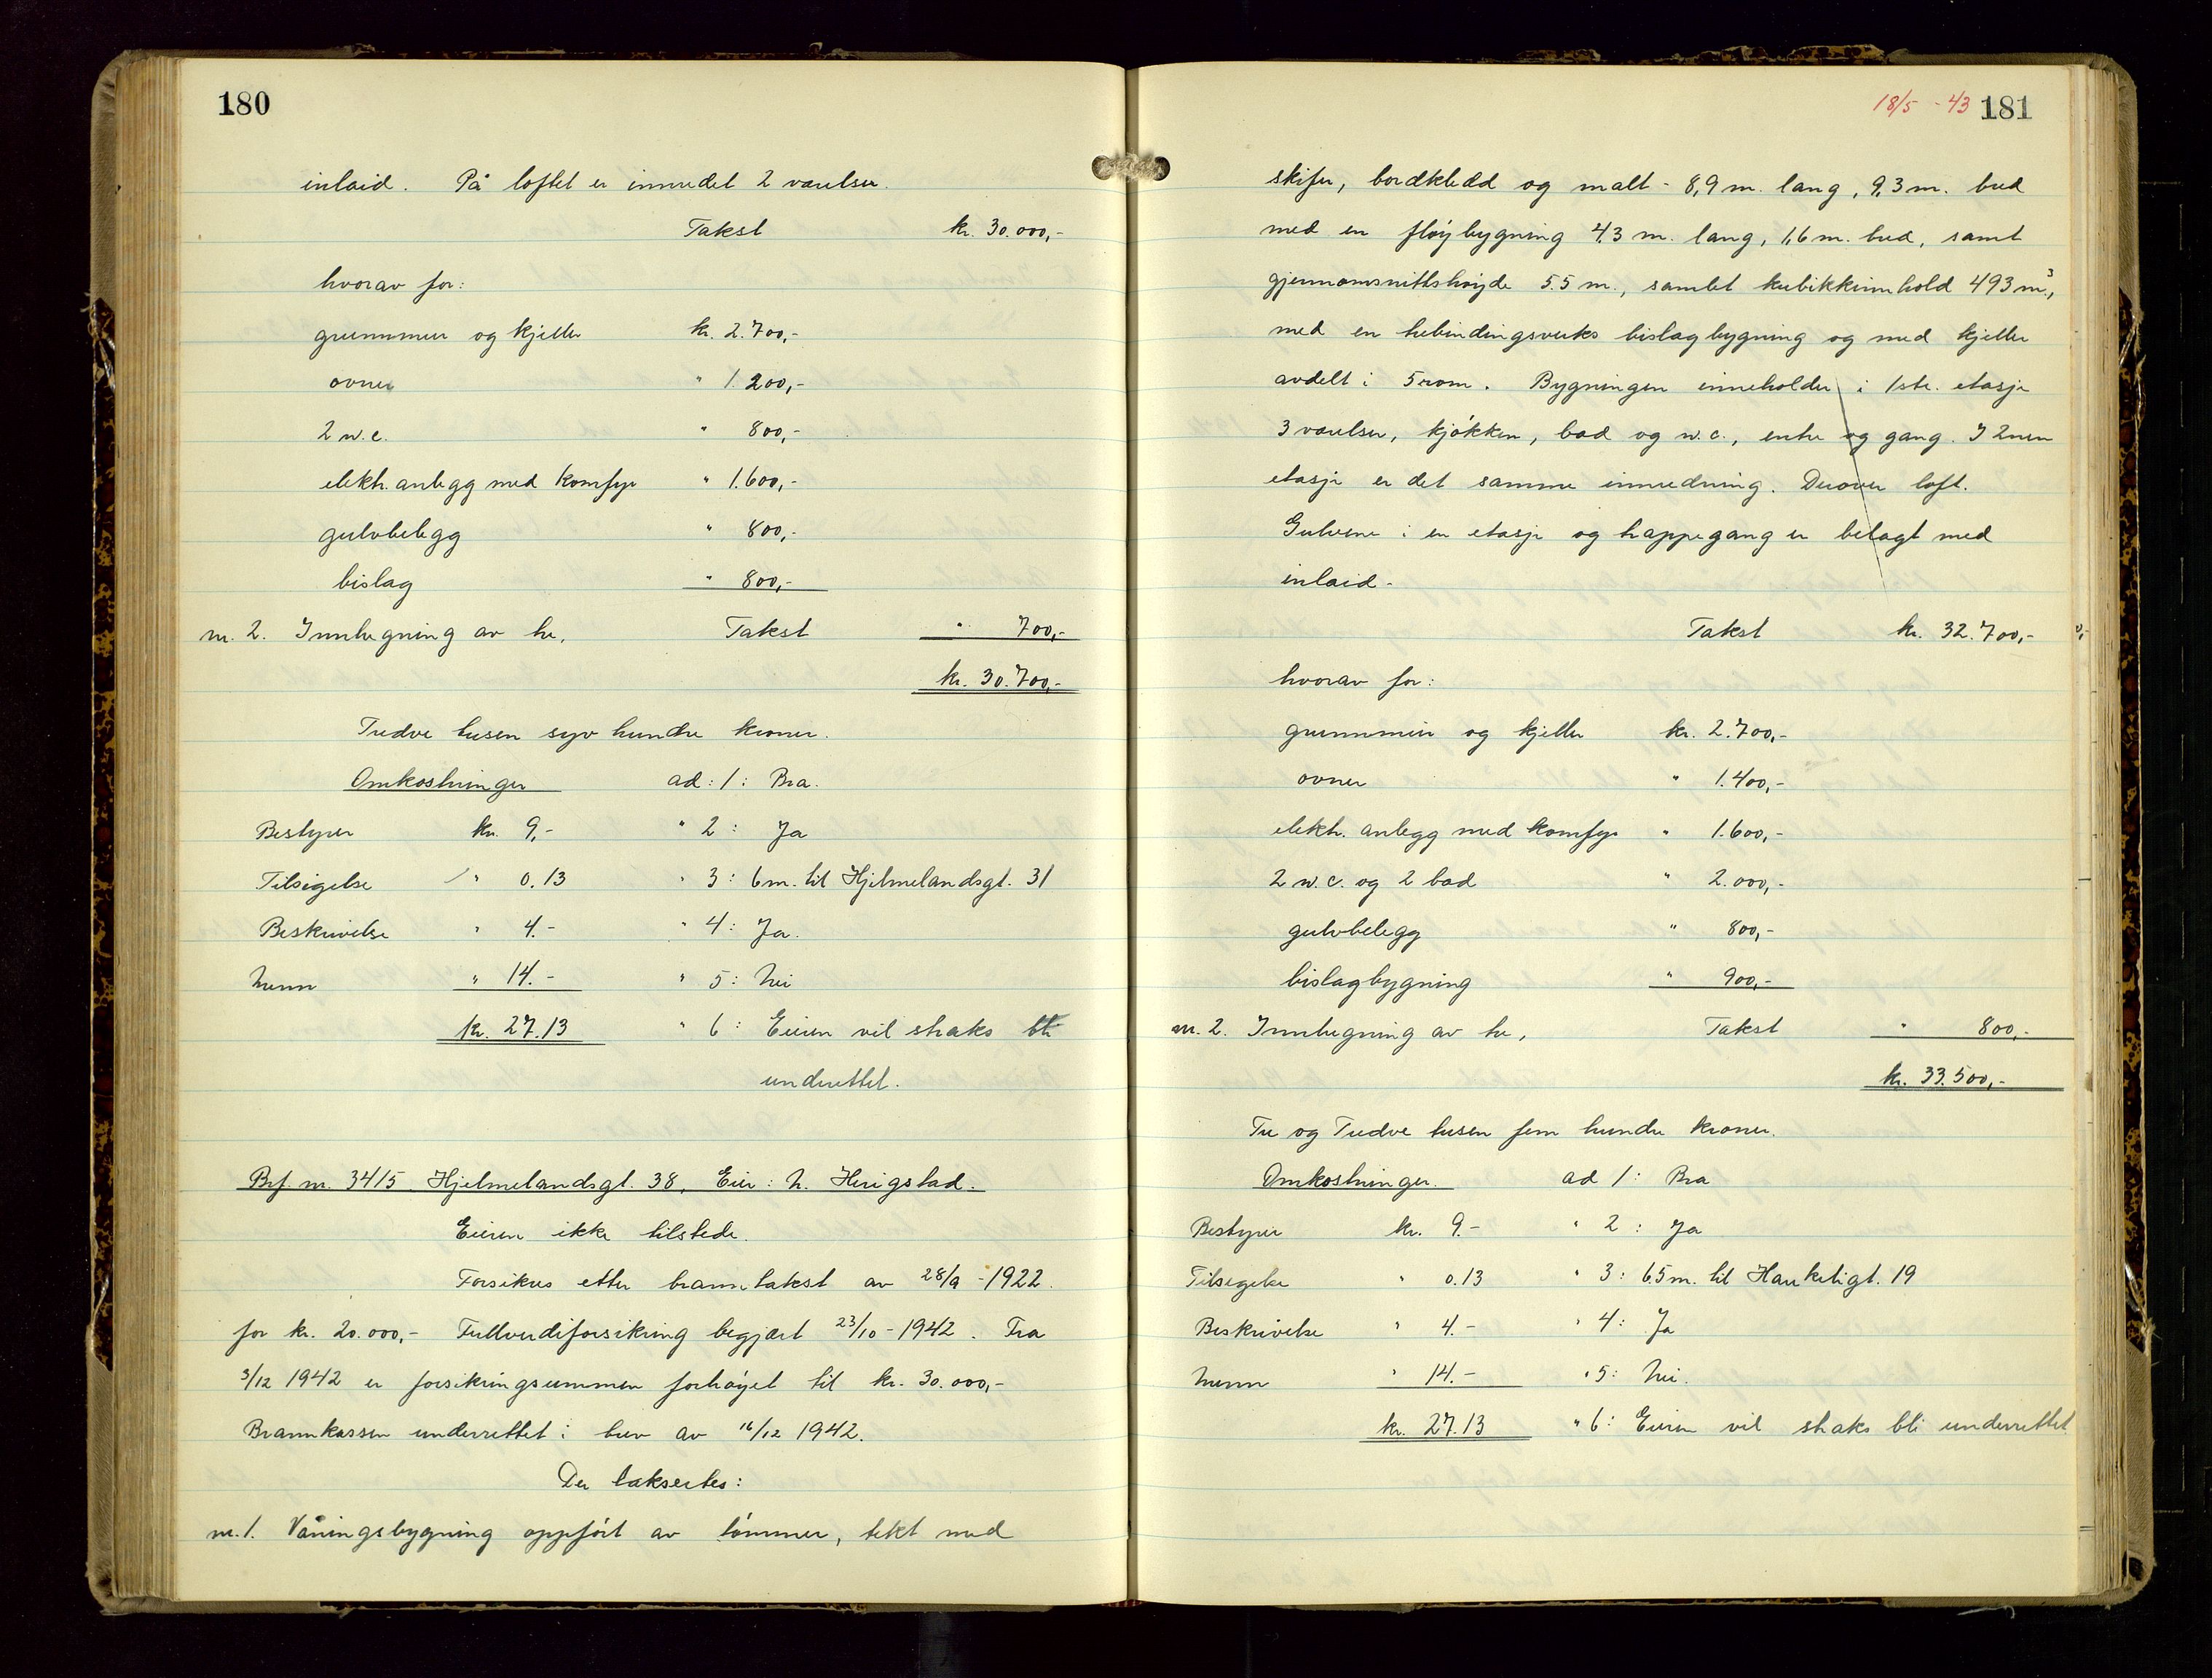 180
inlaid. På loftet er innredet 2 værelser.
Takst kr. 30.000,-
hvorav for:
grunnmur og kjeller kr. 2.700,-
ovner " 1.200,-
2 w.c. " 800,-
elektr. anlegg med komfyr " 1.600,-
gulvbelegg " 800,-
bislag " 800,-
nr. 2. Innhegning av tre, Takst " 700,-
kr. 30.700,-
Tredve tusen syv hundre kroner.
Omkostninger ad: 1: Bra.
Bestyrer kr. 9,- " 2: Ja
Tilsigelse " 0.13 " 3: 6 m. til Hjelmelandsgt. 31
Beskrivelse " 4.- " 4: Ja.
Menn " 14.- " 5: Nei
kr. 27.13 " 6: Eieren vil straks bli
underrettet.
Brf nr. 3415 Hjelmelandsgt. 38, Eier: N. Herigstad.
Eieren ikke tilstede.
Forsikres etter branntakst av 28/9 - 1922.
for kr. 20.000,- Fullverdiforsikring begjært 23/10 - 1942. Fra
3/12 1942 er forsikringsummen forhøyet til kr. 30.000,-
Brannkassen underrettet i brev av 16/12 1942.
Der taksertes:
nr. 1. Våningsbygning oppført av tømmer, tekt med
18/5 - 43 181
skifer, bordkledd og malt - 8,9 m. lang, 9,3 m. bred
med en fløybygning 4,3 m. lang, 1,6 m. bred, samt
gjennomsnittshøyde 5.5 m., samlet kubikkinnhold 493 m³,
med en trebindingsverks bislagbygning og med kjeller
avdelt i 5 rom. Bygningen inneholder i 1ste. etasje
3 værelser, kjøkken, bad og w.c., entre og gang. I 2nen
etasje er det samme innredning. Derover loft.
Gulvene i en etasje og trappegang er belagt med
inlaid.
Takst kr. 32.700,-
hvorav for:
grunnmur og kjeller kr. 2.700,-
ovner " 1.400,-
elektr. anlegg med komfyr " 1.600,-
2 w.c. og 2 bad " 2.000,-
gulvbelegg " 800,-
bislagbygning " 900,-
nr. 2. Innhegning av tre, Takst " 800,-
kr. 33.500,-
Tre og Tredve tusen fem hundre kroner.
Omkostninger. ad 1: Bra
Bestyrer kr. 9.- " 2: Ja
Tilsigelse " 0.13 " 3: 6.5 m. til Haukeligt. 19
Beskrivelse " 4.- " 4: Ja
Menn " 14.- " 5: Nei.
kr. 27.13 " 6: Eieren vil straks bli underrettet